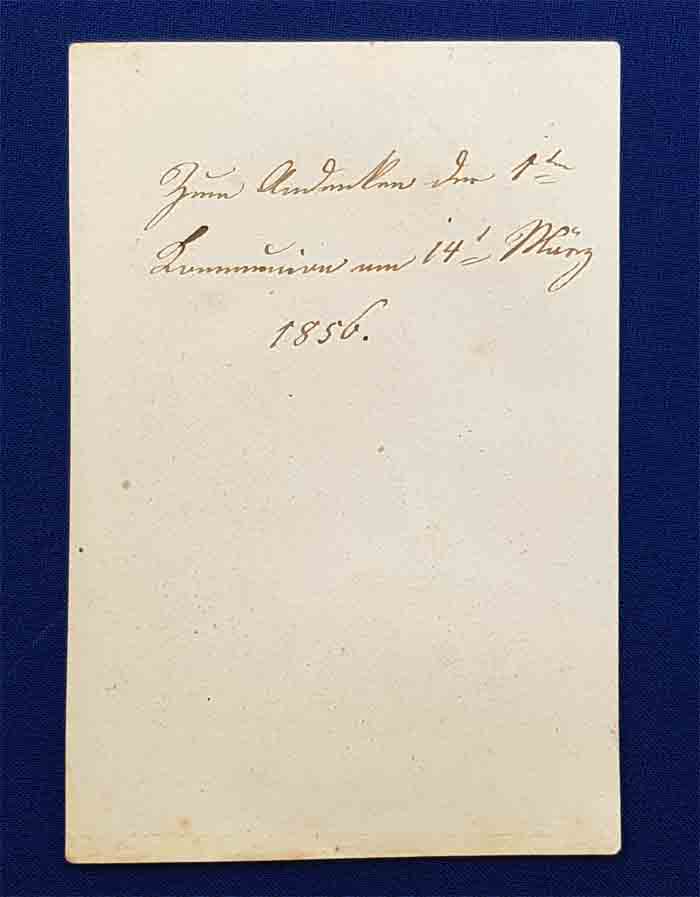 Zum Andenken der 1ten
Kommunion am 14t März
1856.